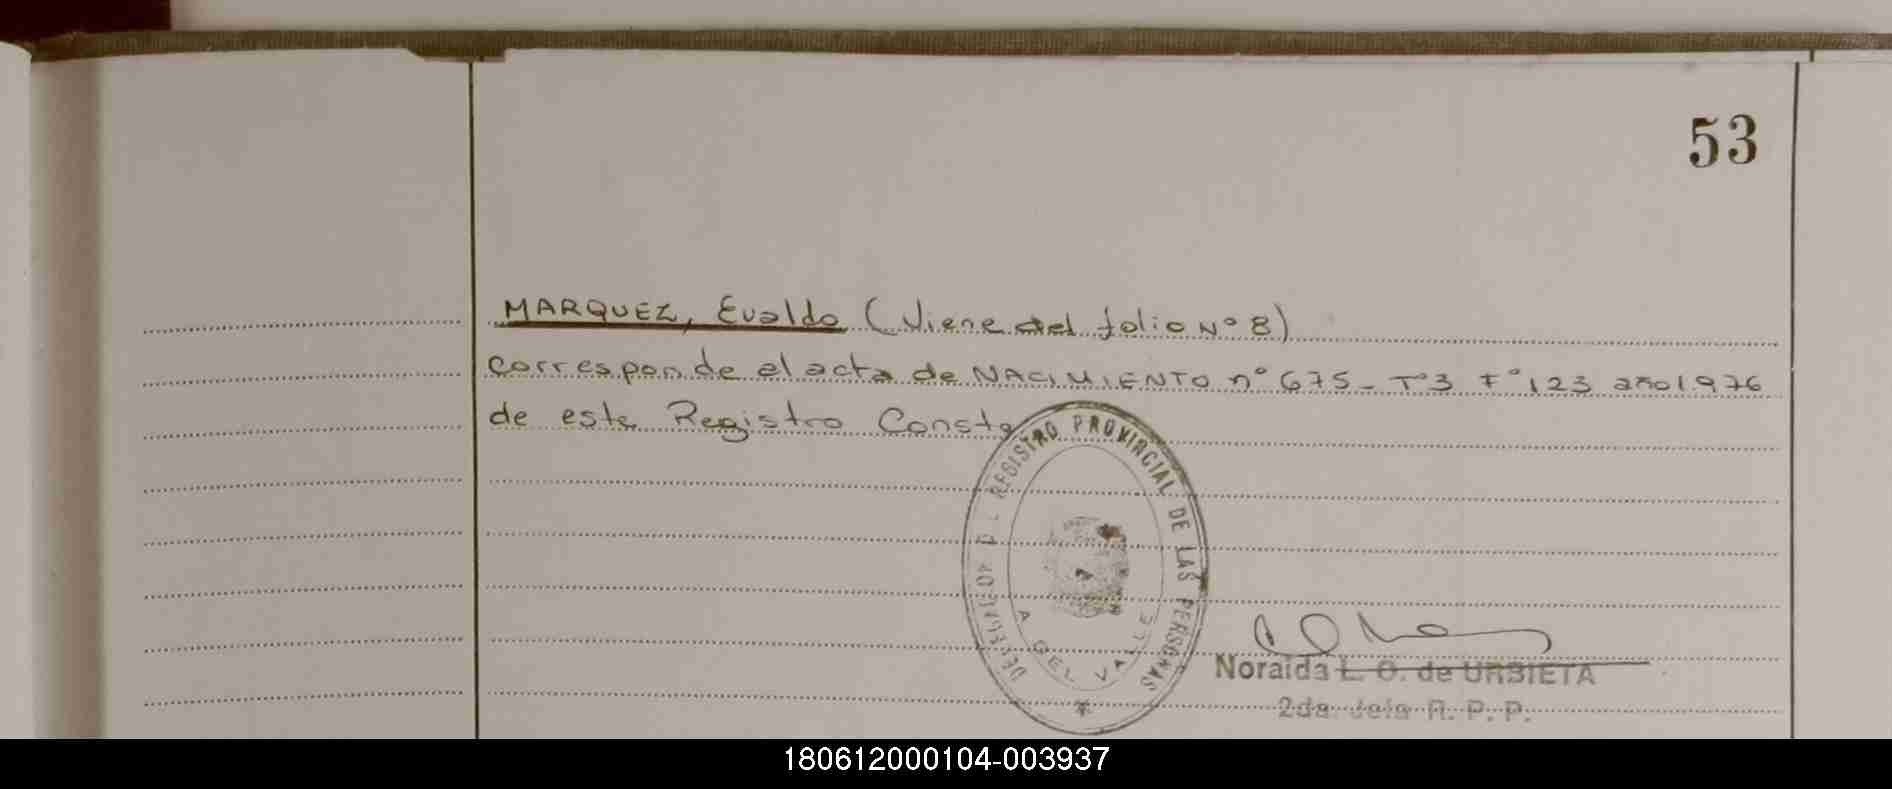 53
MARQUEZ, Evaldo (Viene del folio Nº 8)
corresponde al acta de NACIMIENTO nº 675- Tº3 Fº 123 año 1976
de este Registro Conste
REGISTRO PROVINCIAL DE LAS PERSONAS
DEL VALLE
Noraida L. O. de URBIETA
2da. Jefa R. P. P.
180612000104-003937